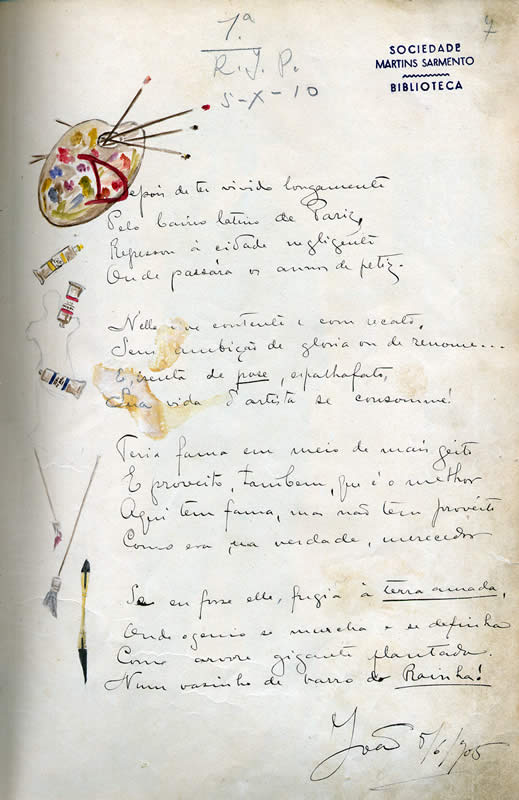 1.ª
R. J. P.
5-X-10
7
SOCIEDADE
MARTINS SARMENTO
BIBLIOTECA
Depois de ter vivido longamente
Pelo bairro latino de Pariz,
Regressou á cidade negligente
Onde passára os annos de petiz.
Nella vive contente e com recato,
Sem ambição de gloria ou de renome...
E, isenta de pose, espalhafato,
Sua vida d'artista se consomme!
Teria fama em meio de mais geito
E proveito, tambem, que é o melhor
Aqui tem fama, mas não tem proveito
Como era, na verdade, merecedor
Se eu fosse elle, fugia á terra amada,
Onde o genio se murcha e se definha
Como arvore gigante plantada
Num vasinho de barro da Rainha!
João 5/6/905